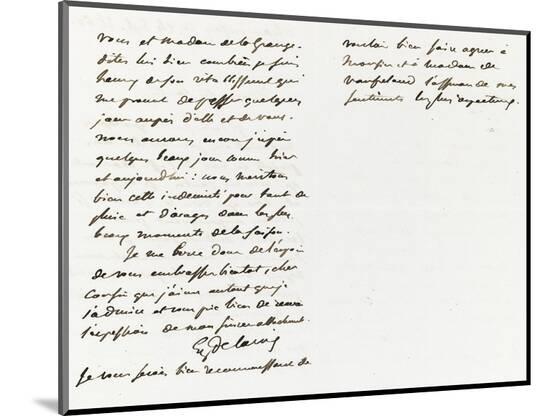 vous et madame de la Grange.
dites lui bien combien je suis
heureux de son rétablissement qui
me promet de passer quelques
jours auprès d'elle et de vous.
nous aurons encore j'espère
quelques beaux jours comme hier
et aujourd'hui: nous méritons
bien cette indemnité pour tant de
pluie et d'orages dans les plus
beaux moments de la saison.
Je me berce donc de l'espoir
de vous embrasser bientot, cher
Cousin que j'aime autant que je
l'admire et vous prie bien de
l'expression de mon sincer attachement.
Eug Delacroix
Je vous serais bien reconnaissant de
vouloir bien faire agréer à
et à madame de
de mes
sentiments les plus